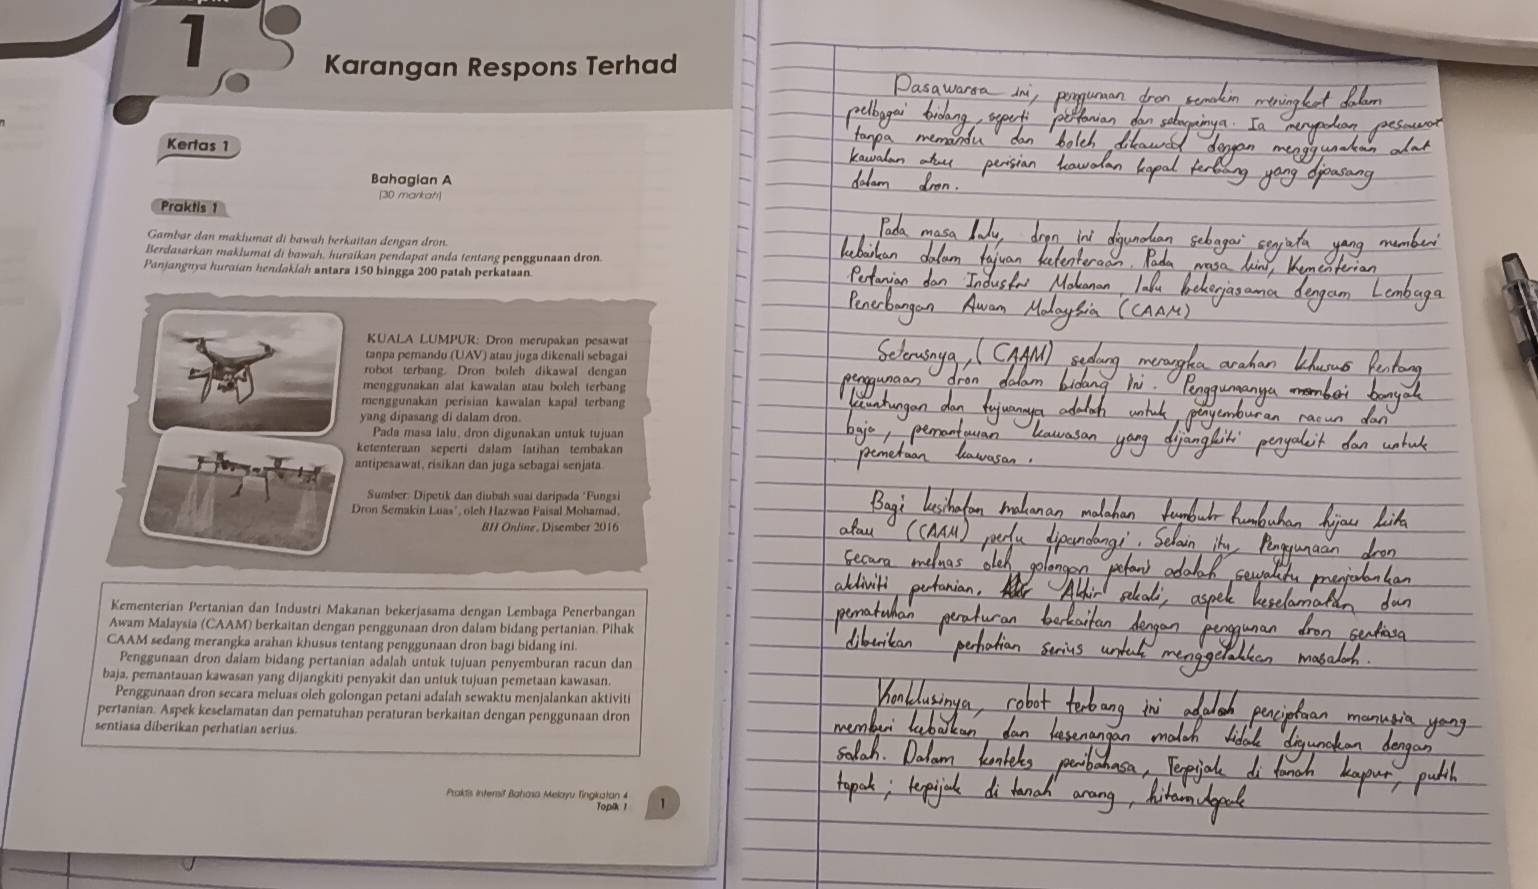 1
Karangan Respons Terhad
Kertas 1
Bahagian A
[30 markah]
Praktis 1
Gambar dan maklumat di bawah berkaitan dengan dron.
Berdasarkan maklumat di bawah, huraikan pendapat anda tentang penggunaan dron.
Panjangnya huraian hendaklah antara 150 hingga 200 patah perkataan.
KUALA LUMPUR: Dron merupakan pesawat
tanpa pemandu (UAV) atau juga dikenali sebagai
robot terbang. Dron boleh dikawal dengan
menggunakan alat kawalan atau boleh terbang
menggunakan perisian kawalan kapal terbang
yang dipasang di dalam dron.
Pada masa lalu, dron digunakan untuk tujuan
ketenteraan seperti dalam latihan tembakan
antipesawat, risikan dan juga sebagai senjata.
Sumber: Dipetik dan diubah suai daripada 'Fungsi
Dron Semakin Luas', oleh Hazwan Faisal Mohamad,
BH Online, Disember 2016
Kementerian Pertanian dan Industri Makanan bekerjasama dengan Lembaga Penerbangan
Awam Malaysia (CAAM) berkaitan dengan penggunaan dron dalam bidang pertanian. Pihak
CAAM sedang merangka arahan khusus tentang penggunaan dron bagi bidang ini.
Penggunaan dron dalam bidang pertanian adalah untuk tujuan penyemburan racun dan
baja, pemantauan kawasan yang dijangkiti penyakit dan untuk tujuan pemetaan kawasan.
Penggunaan dron secara meluas oleh golongan petani adalah sewaktu menjalankan aktiviti
pertanian. Aspek keselamatan dan pematuhan peraturan berkaitan dengan penggunaan dron
sentiasa diberikan perhatian serius.
Praktis Intensif Bahasa Melayu Tingkatan 4
Topik 1
1
Dasawarsa ini, penggunaan dron semakin meningkat dalam
pelbagai bidang, seperti pertanian dan sebagainya. Ia merupakan pesawat
tanpa memandu dan boleh dikawal dengan menggunakan alat
kawalan atau perisian kawalan kapal terbang yang dipasang
dalam dron.
Pada masa lalu, dron ini digunakan sebagai senjata yang memberi
kebaikan dalam tujuan ketenteraan. Pada masa kini, Kementerian
Pertanian dan Industri Makanan lalu bekerjasama dengam Lembaga
Penerbangan Awam Malaysia (CAAM)
Seterusnya, (CAAM) sedang merangka arahan khusus tentang
penggunaan dron dalam bidang ini. Penggunanya memberi banyak
keuntungan dan tujuannya adalah untuk penyemburan racun dan
baja, pemantauan kawasan yang dijangkiti penyakit dan untuk
pemetaan kawasan.
Bagi kesihatan makanan malahan tumbuh tumbuhan hijau kita
atau (CAAM) perlu dipandangi. Selain itu, Penggunaan dron
secara meluas oleh golongan petani adalah sewaktu menjalankan
aktiviti pertanian. Akhir sekali, aspek keselamatan dan
pematuhan peraturan berkaitan dengan penggunan dron sentiasa
diberikan perhatian serius untuk menggelakkan masalah.
Konklusinya, robot terbang ini adalah penciptaan manusia yang
memberi kebaikan dan kesenangan malah tidak digunakan dengan
salah. Dalam konteks peribahasa, Terpijak di tanah kapur, putih
tapak; terpijak di tanah arang, hitam tapak